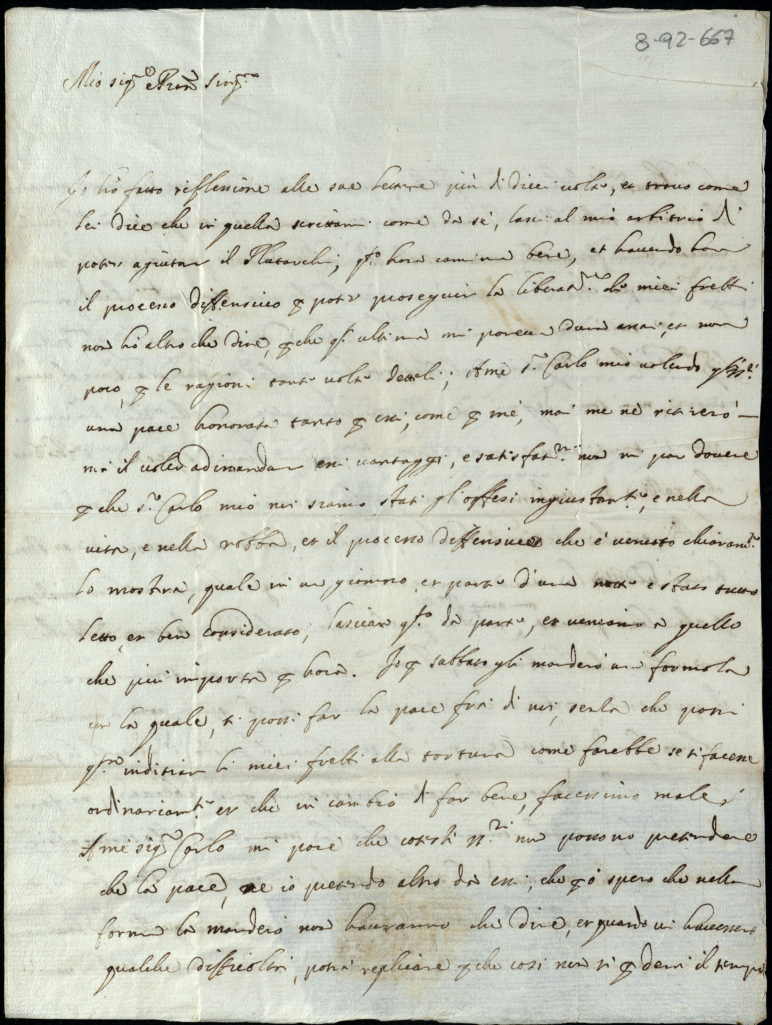 8-92-667
Mio sig.re e Pron Sing.re
Io hò fatto riflessione alle sue lettere più di dieci volte, et trovo come
lei dice che in quella scrittami come da sé, lasci al mio arbitrio di
poter agiutar il Plutarchi, hora camina bene, et havendo hora
il processo diffensivo p poter proseguir la liberat.ne de miei frelli
non hò altro che dire, che q.st ultima mi pareva dura assai, et non
poco, p le ragioni tante volte detteli; Amè s.r Carlo mio volendo
una pace honorata tanto p essi, come p mè, mai me nè ritirerò
mà il voler adimandar essi vantaggi, e satisfat.ni non mi par dovere
p che s.r Carlo mio noi siamo stati gl'offesi ingiustam.te, e nella
vita, e nella robba, et il processo diffensivo che è venuto chiaram.te
lo mostra, quale in un giorno, et parte d'una notte è stato tutto
letto, et ben considerato; lasciam q.sto da parte, et veniamo a quello
che più importa p hora. Io p sabbato gli manderò una formola
in la quale, si possi far la pace frà di noi, senza che possi
inditiar li miei frelli alla tortura come farebbe se si facesse
ordinariam.te et che in cambio di far bene, facessimo male;
Amè sig.r Carlo mi pare che cotesti ss.ri non possono pretendere
che la pace, ne io pretendo altro da essi, che p ò spero che nella
forma la manderò non hauranno che dire, et quando vi havessero
qualche difficoltà, potrà replicare p che così non si p derà il tempo